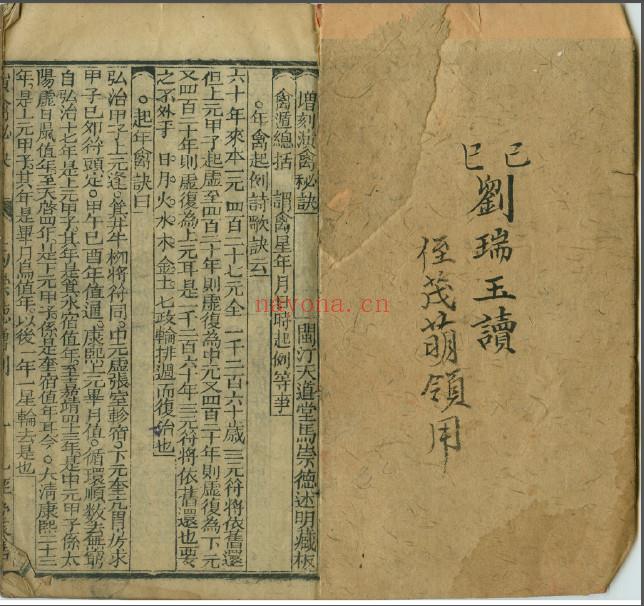 己巳
劉瑞玉讀
侄茂萌領用
nayona.cn
增刻演禽秘訣
閩汀大道堂馬崇德述明藏板
禽遁總括 謂禽星年月日時起例等事
○年禽起例詩歌訣云
六十年來本一元 四百二十七元全 一千二百六十歲 三元符將依舊還
但上元甲子起虛至四百二十年則虛復為中元又四百二十年則虛復為下元
又四百二十年則虛復為上元耳是一千二百六十年三元符將依舊還也要
之不外乎 日月火水木金土七政輪排週而復始也
○起年禽訣曰
弘治甲子上元逢 箕井牛柳將符同 中元虛張室軫宿 下元奎亢胃房求
甲子已卯符頭定 甲午己酉年值遁 康熙上元畢月值 循環順數去無窮
自弘治十七年是上元甲子其年是箕水宿值年至嘉靖四十三年是中元甲子係太
陽虛日鼠值年至天啓四年是下元甲子係是奎宿值年耳今 大清康熙二十三
年是上元甲子其年是畢月烏值年以後一年一星輪去是也
演禽秘訣